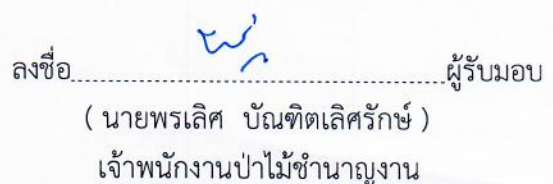 ลงชื่อ........................................................ผู้รับมอบ
( นายพรเลิศ บัณฑิตเลิศรักษ์ )
เจ้าพนักงานป่าไม้ชำนาญงาน